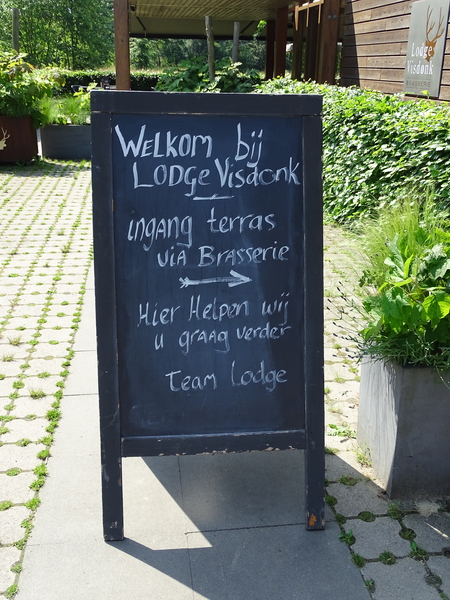 Lodge
Visdonk
WELKOM bij
LODGE Visdonk
ingang terras
via Brasserie
Hier Helpen wij
u graag verder
Team Lodge